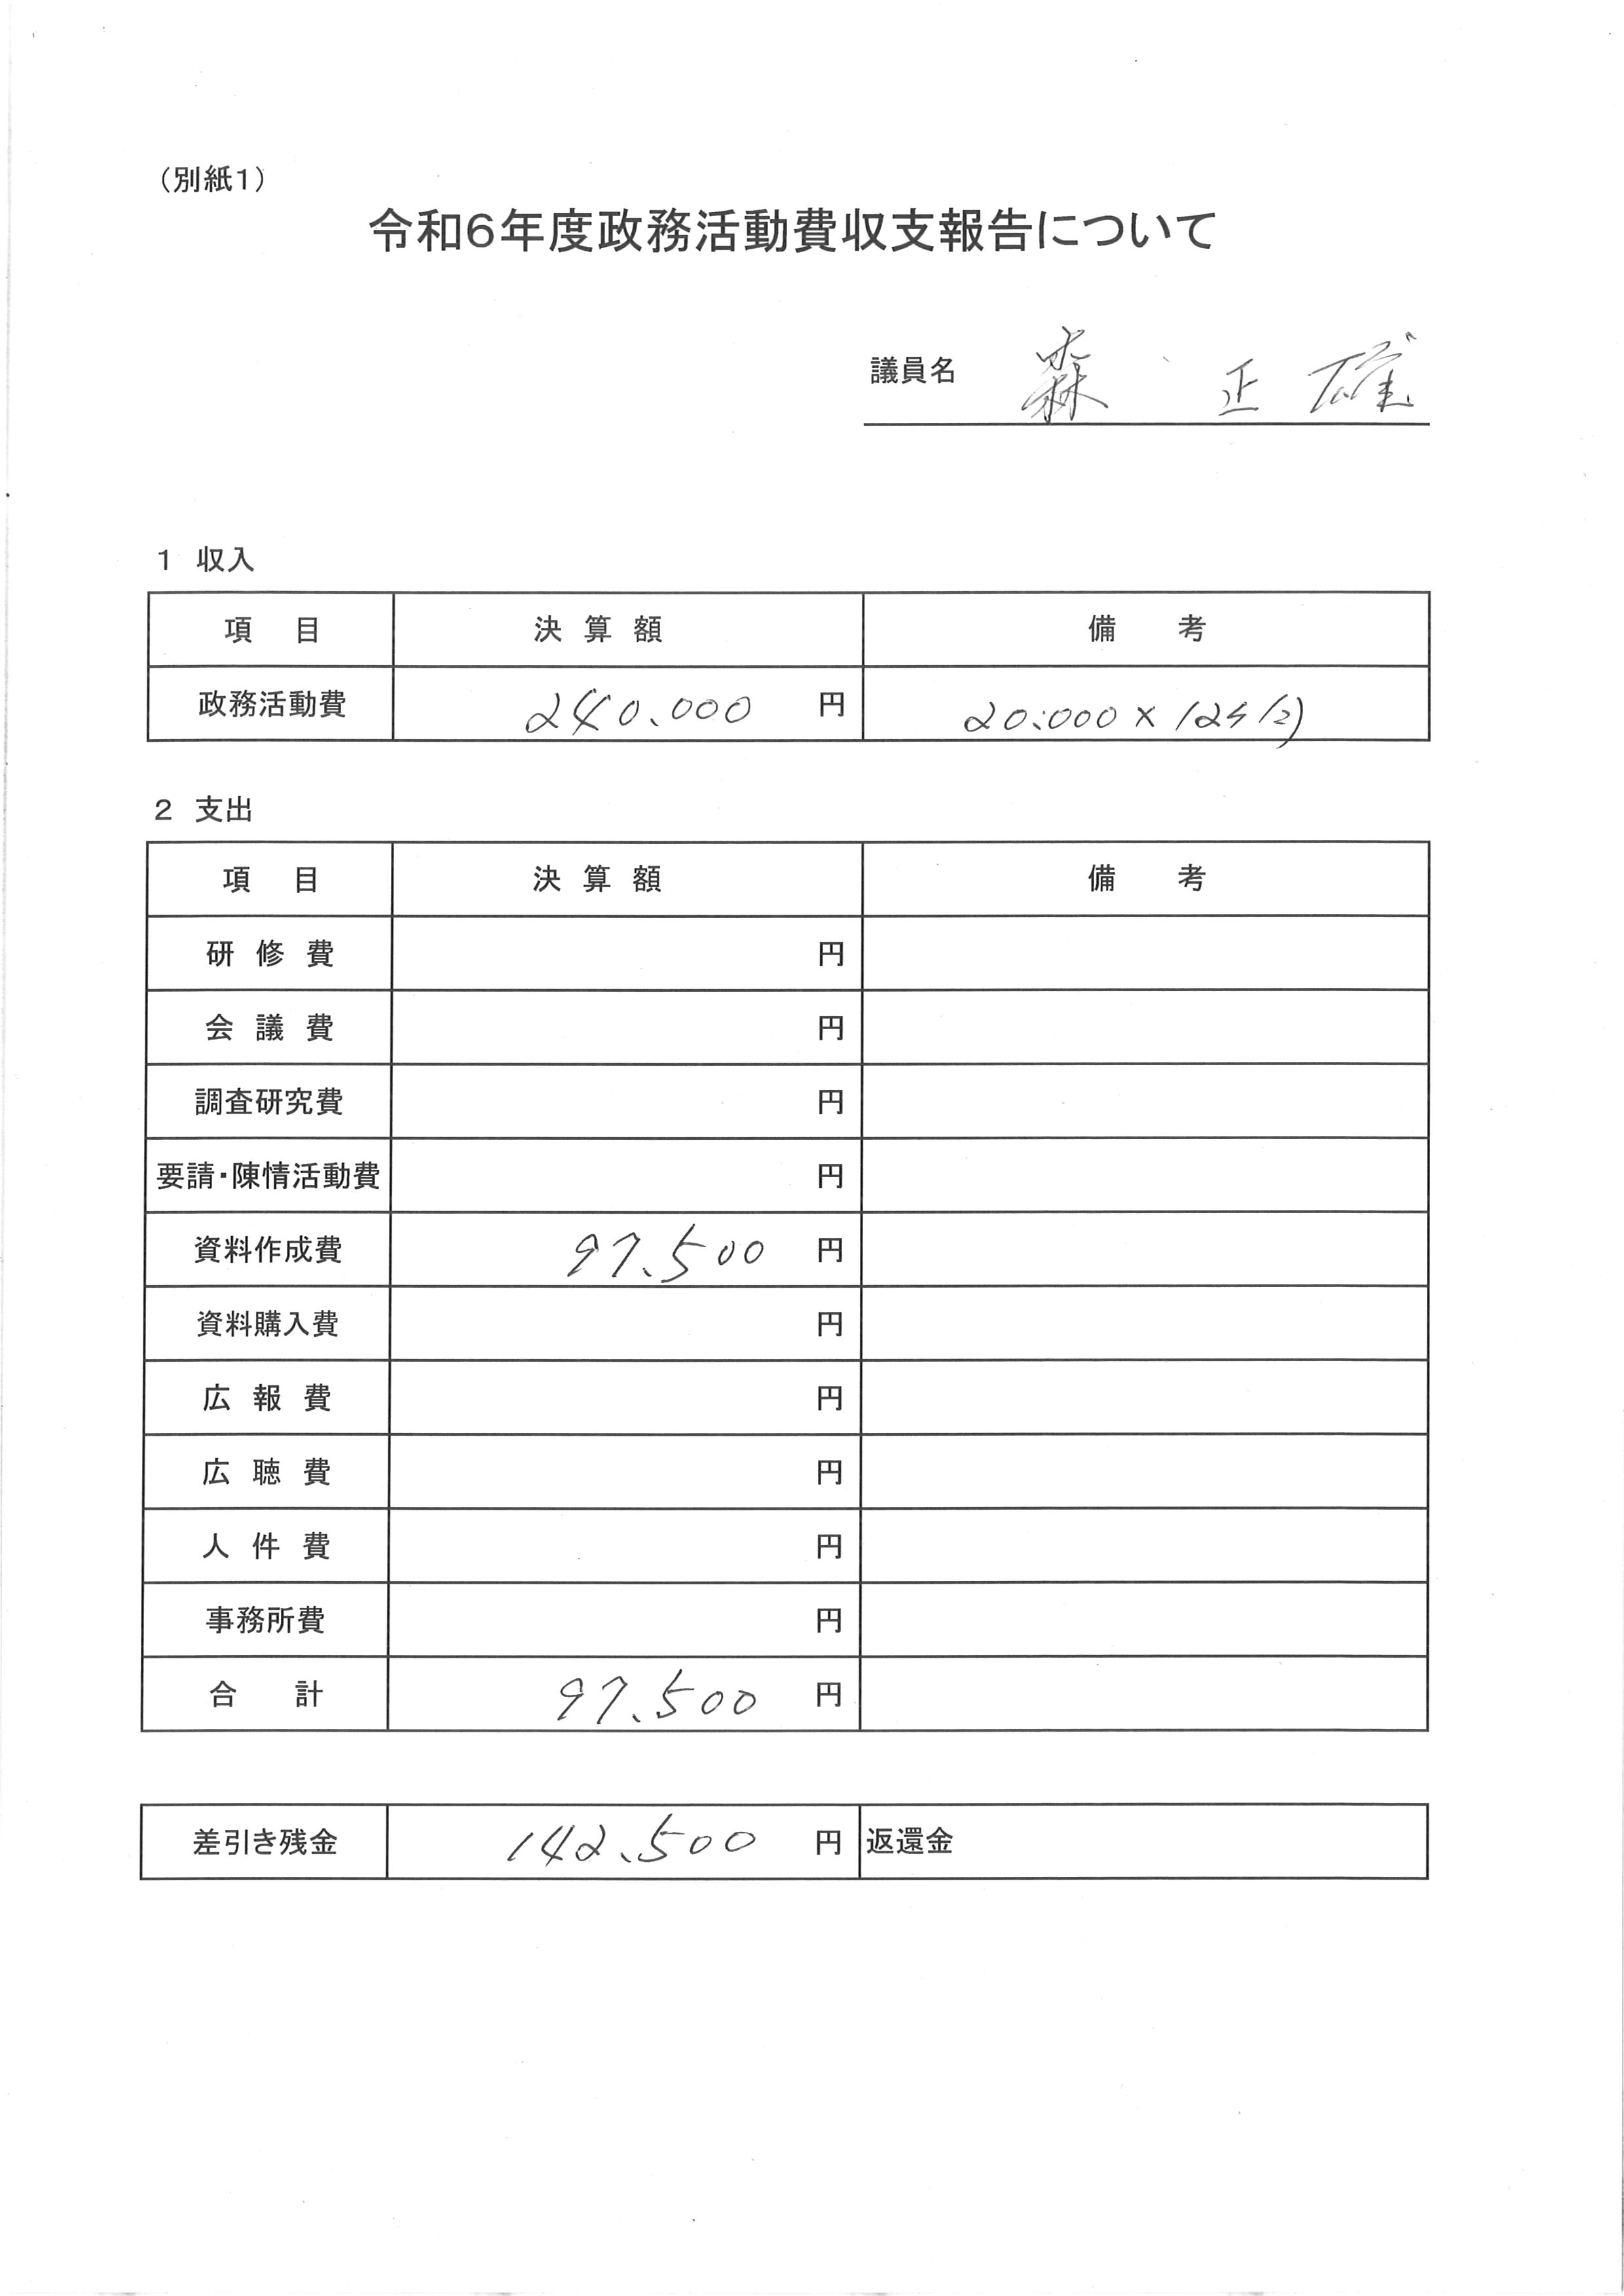 （別紙1）
令和6年度政務活動費収支報告について
議員名 森 正雄
1 収入
項 目 決 算 額 備 考
政務活動費 240.000 円 20.000 × 12ヶ月
2 支出
項 目 決 算 額 備 考
研 修 費 円
会 議 費 円
調査研究費 円
要請・陳情活動費 円
資料作成費 97.500 円
資料購入費 円
広 報 費 円
広 聴 費 円
人 件 費 円
事務所費 円
合 計 97.500 円
差引き残金 142.500 円 返還金